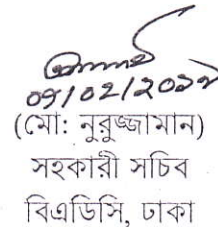 ০৭/০২/২০১৮
(মো: নুরুজ্জামান)
সহকারী সচিব
বিএডিসি, ঢাকা